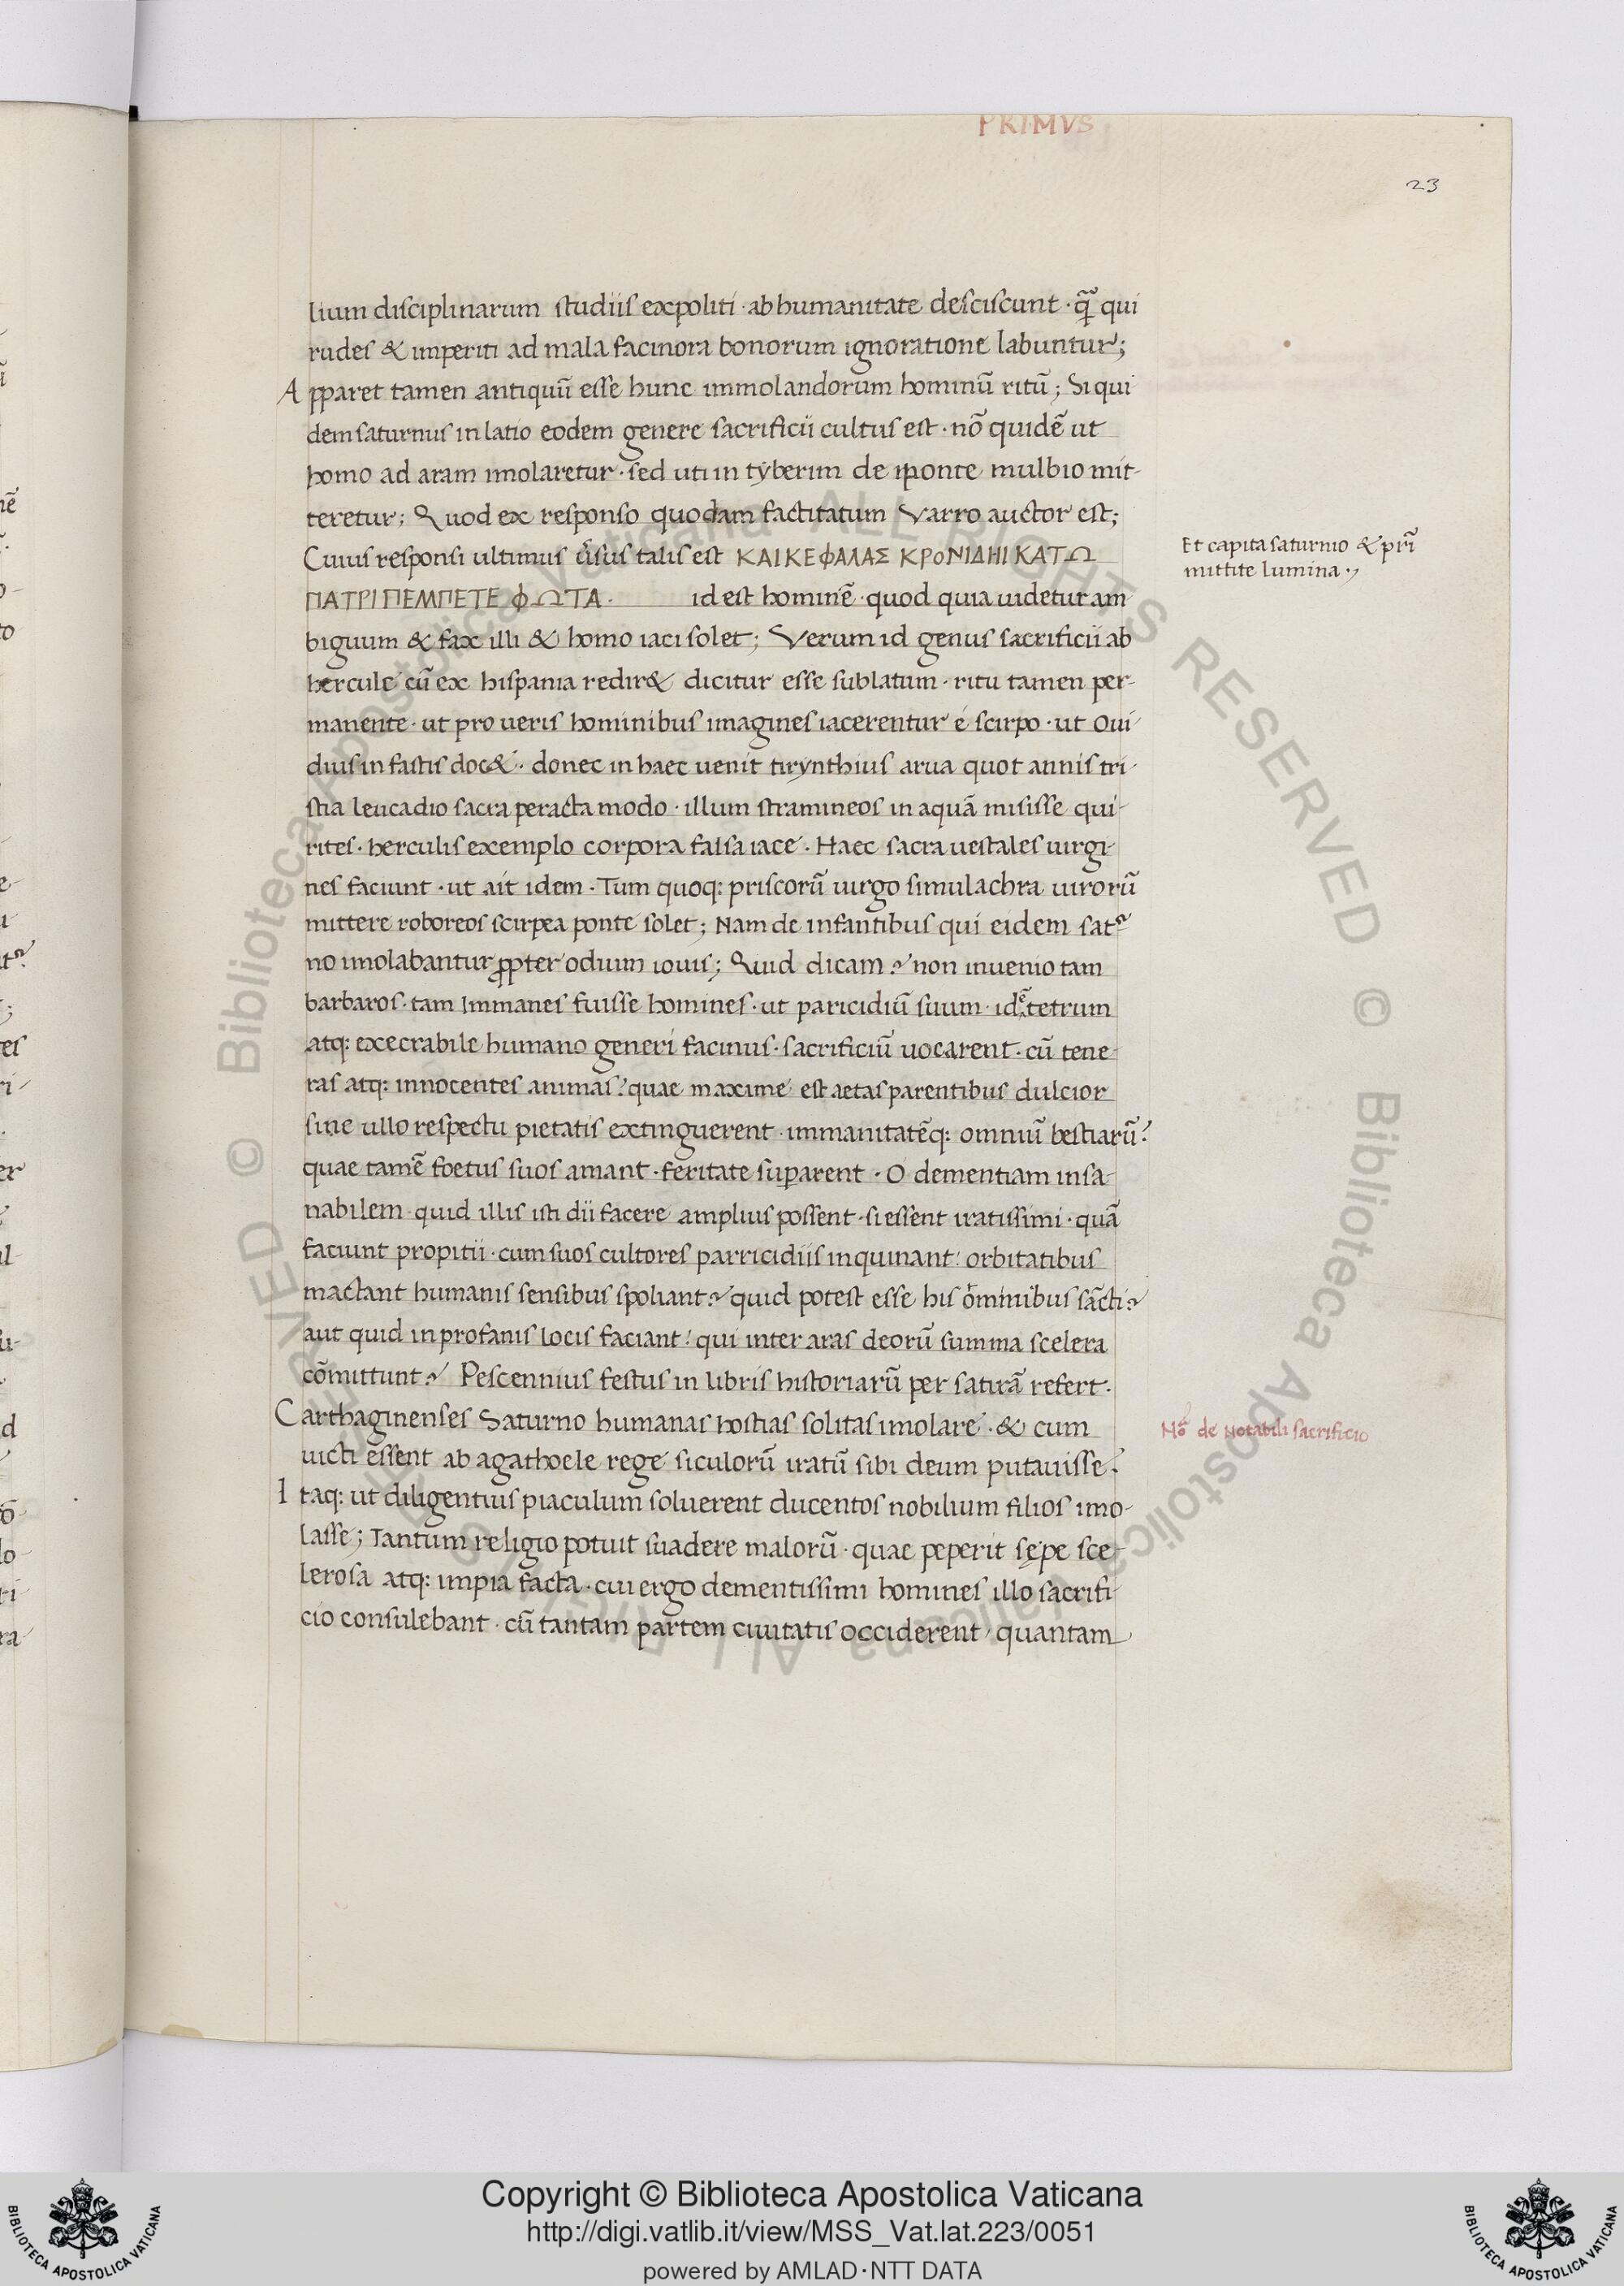 PRIMVS
23
lium disciplinarum studiis expoliti · ab humanitate desciscunt · q̃ qui
rudes & imperiti ad mala facinora bonorum ignoratione labuntur;
Apparet tamen antiquũ esse hunc immolandorum hominũ ritũ; Si qui
dem saturnus in latio eodem genere sacrificii cultus est · nõ quidẽ ut
homo ad aram imolaretur · sed uti in tyberim de ponte mulbio mit-
teretur; Quod ex responso quodam factitatum Varro auctor est;
Cuius responsi ultimus ũsus talis est ΚΑΙ ΚΕΦΑΛΑΣ ΚΡΟΝΙΔΗΙ ΚΑΤΩ
ΠΑΤΡΙ ΠΕΜΠΕΤΕ ΦΩΤΑ · id est hominẽ · quod quia uidetur am
biguum & fax illi & homo iaci solet; Verum id genus sacrificii ab
hercule cũ ex hispania redir& dicitur esse sublatum · ritu tamen per-
manente · ut pro ueris hominibus imagines iacerentur é scirpo · ut Oui-
dius in fastis doc& · donec in haec uenit tirynthius arua quot annis tri-
stia leucadio sacra peracta modo · illum stramineos in aquã misisse qui-
rites · herculis exemplo corpora falsa iace · Haec sacra uestales uirgi-
nes faciunt · ut ait idem · Tum quoq: priscorũ uirgo simulachra uirorũ
mittere roboreos scirpea ponte solet; Nam de infantibus qui eidem sat᷑
no imolabantur ꝓpter odium iouis; Quid dicam? non inuenio tam
barbaros · tam Immanes fuisse homines · ut paricidiũ suum · id ẽ tetrum
atq: execrabile humano generi facinus · sacrificiũ uocarent · cũ tene-
ras atq: innocentes animas? quae maxime est aetas parentibus dulcior
sine ullo respectu pietatis extinguerent · immanitatẽq: omniũ bestiarũ?
quae tamẽ foetus suos amant · feritate suꝑarent · O dementiam insa-
nabilem · quid illis isti dii facere amplius possent · si essent iratissimi · quã
faciunt propitii · cum suos cultores parricidiis inquinant! orbitatibus
mactant humanis sensibus spoliant? quid potest esse his ominibus sãcti?
aut quid in profanis locis faciant! qui inter aras deorũ summa scelera
cõmittunt? Pescennius festus in libris historiarũ per satirã refert ·
Carthaginenses Saturno humanas hostias solitas imolare · & cum
uicti essent ab agathocle rege siculorũ iratũ sibi deum putauisse?
Itaq: ut diligentius piaculum soluerent ducentos nobilium filios imo-
lasse; Tantum religio potuit suadere malorũ · quae peperit sępe sce-
lerosa atq: impia facta · cui ergo dementissimi homines illo sacrifi-
cio consulebant · cũ tantam partem ciuitatis occiderent, quantam
Et capita saturnio & pr̃i
mittite lumina ·
Nõ de Notabili sacrificio
Copyright © Biblioteca Apostolica Vaticana
http://digi.vatlib.it/view/MSS_Vat.lat.223/0051
powered by AMLAD·NTT DATA
BIBLIOTECA APOSTOLICA VATICANA
BIBLIOTECA APOSTOLICA VATICANA
© Biblioteca Apostolica Vaticana ALL RIGHTS RESERVED
© Biblioteca Apostolica Vaticana ALL RIGHTS RESERVED